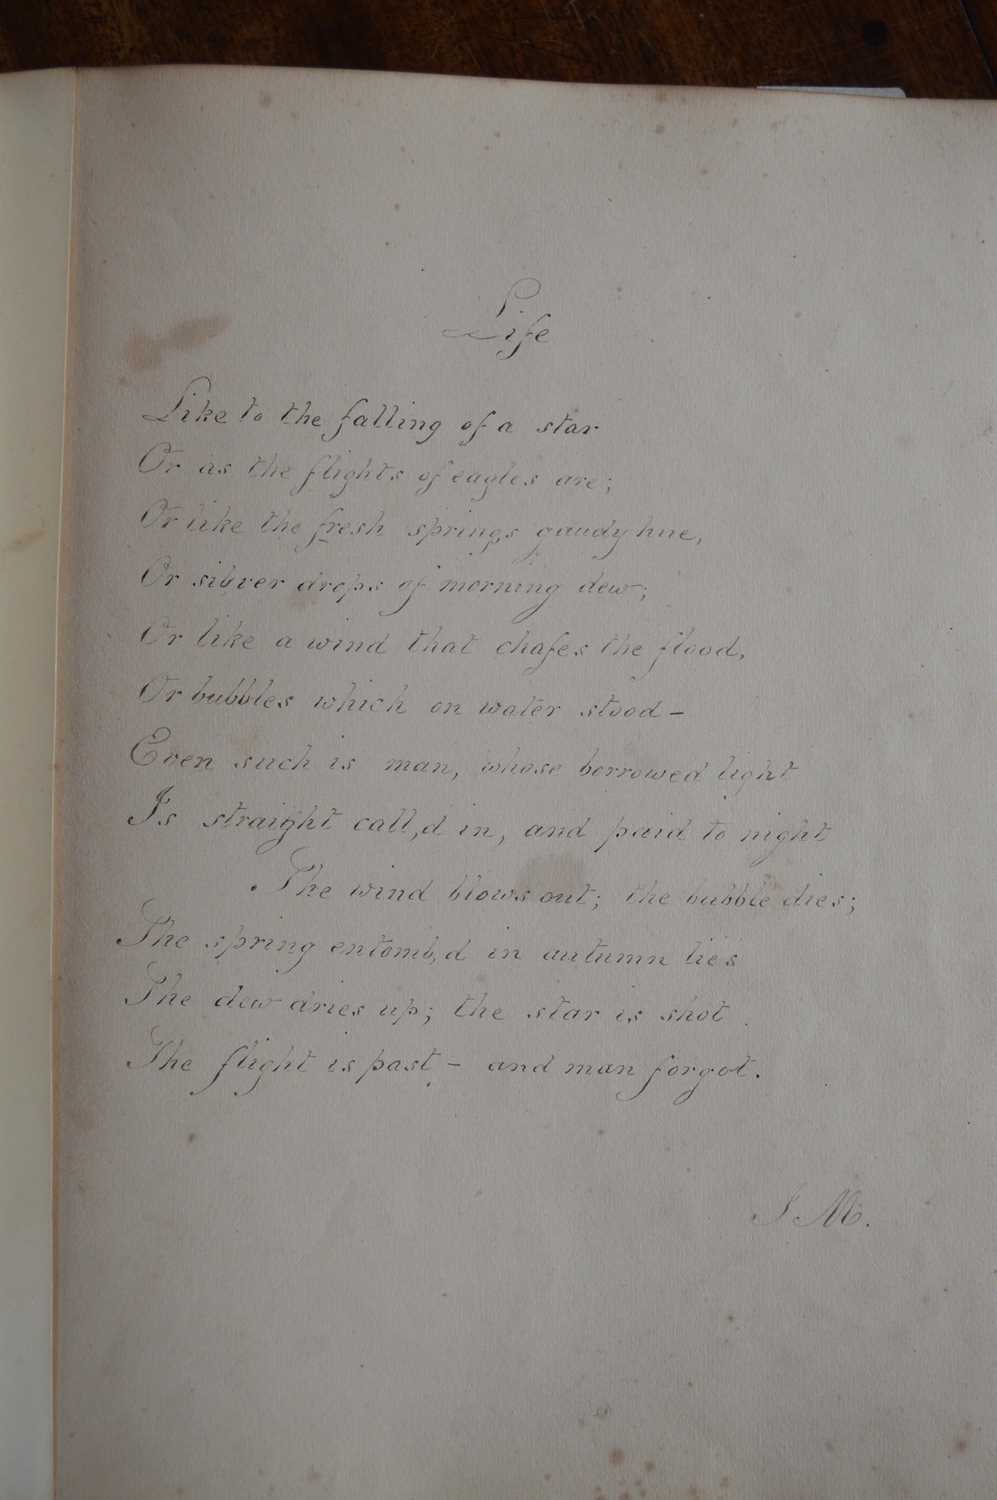 Life
Like to the falling of a star
Or as the flights of eagles are;
Or like the fresh springs gaudy hue,
Or silver drops of morning dew;
Or like a wind that chafes the flood,
Or bubbles which on water stood -
Even such is man, whose borrowed light
Is straight call,d in, and paid to night
The wind blows out; the bubble dies;
The spring entomb,d in autumn lies
The dew dries up; the star is shot
The flight is past - and man forgot.
J M.